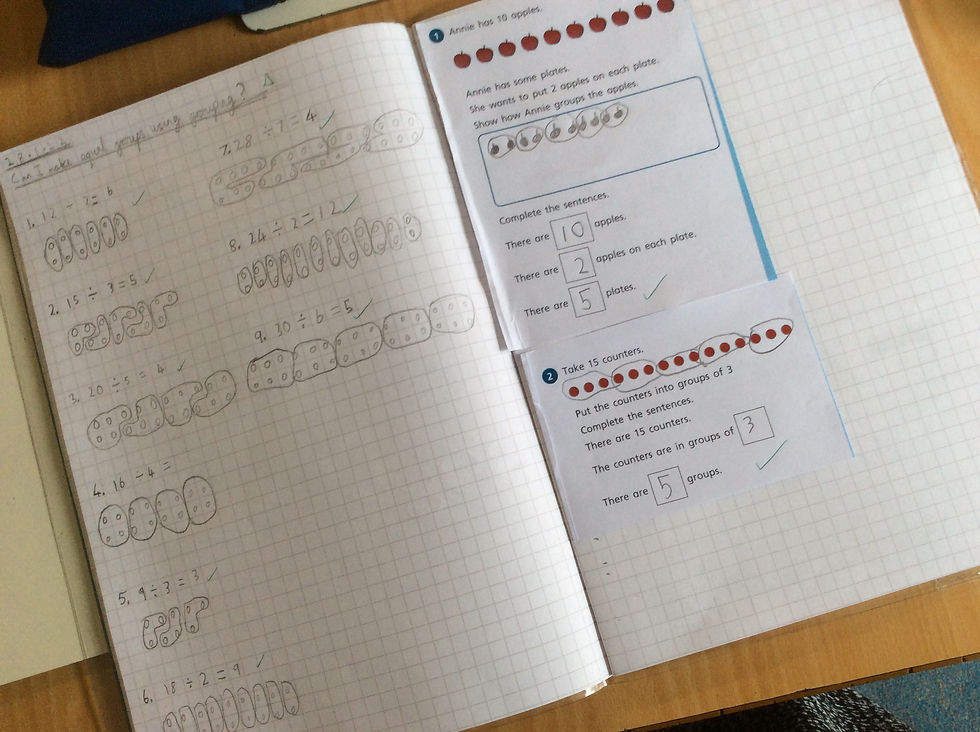 Can I make equal groups using grouping?
1. 12 ÷ 2 = 6
2. 15 ÷ 3 = 5
3. 20 ÷ 5 = 4
4. 16 ÷ 4 =
5. 9 ÷ 3 = 3
6. 18 ÷ 2 = 9
7. 28 ÷ 7 = 4
8. 24 ÷ 2 = 12
9. 30 ÷ 6 = 5
1 Annie has 10 apples.
Annie has some plates.
She wants to put 2 apples on each plate.
Show how Annie groups the apples.
Complete the sentences.
There are 10 apples.
There are 2 apples on each plate.
There are 5 plates.
2 Take 15 counters.
Put the counters into groups of 3
Complete the sentences.
There are 15 counters.
The counters are in groups of 3
There are 5 groups.